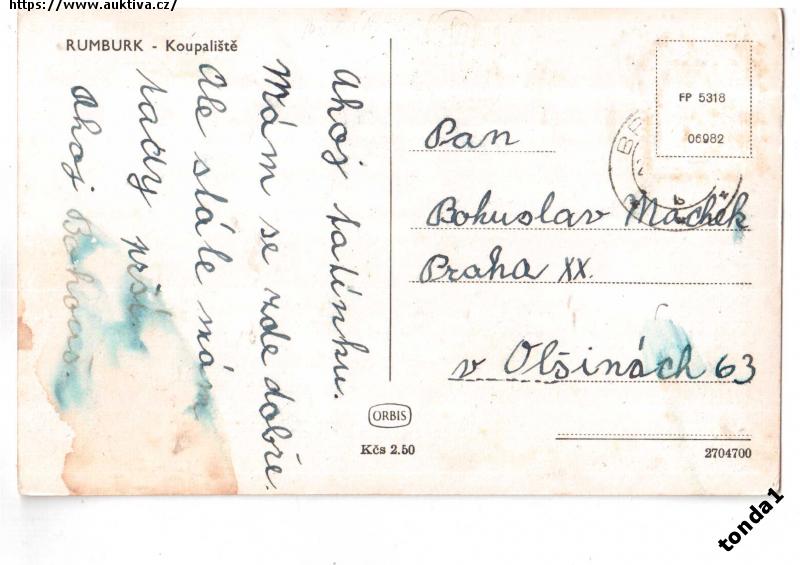 https://www.auktiva.cz/
RUMBURK - Koupaliště
Ahoj tatínku.
Mám se zde dobře.
Ale stále nám
tady prší.
Ahoj Bohouš.
FP 5318
06982
Pan
Bohuslav Máchek
Praha XX.
v Olšinách 63
ORBIS
Kčs 2.50
2704700
tonda1